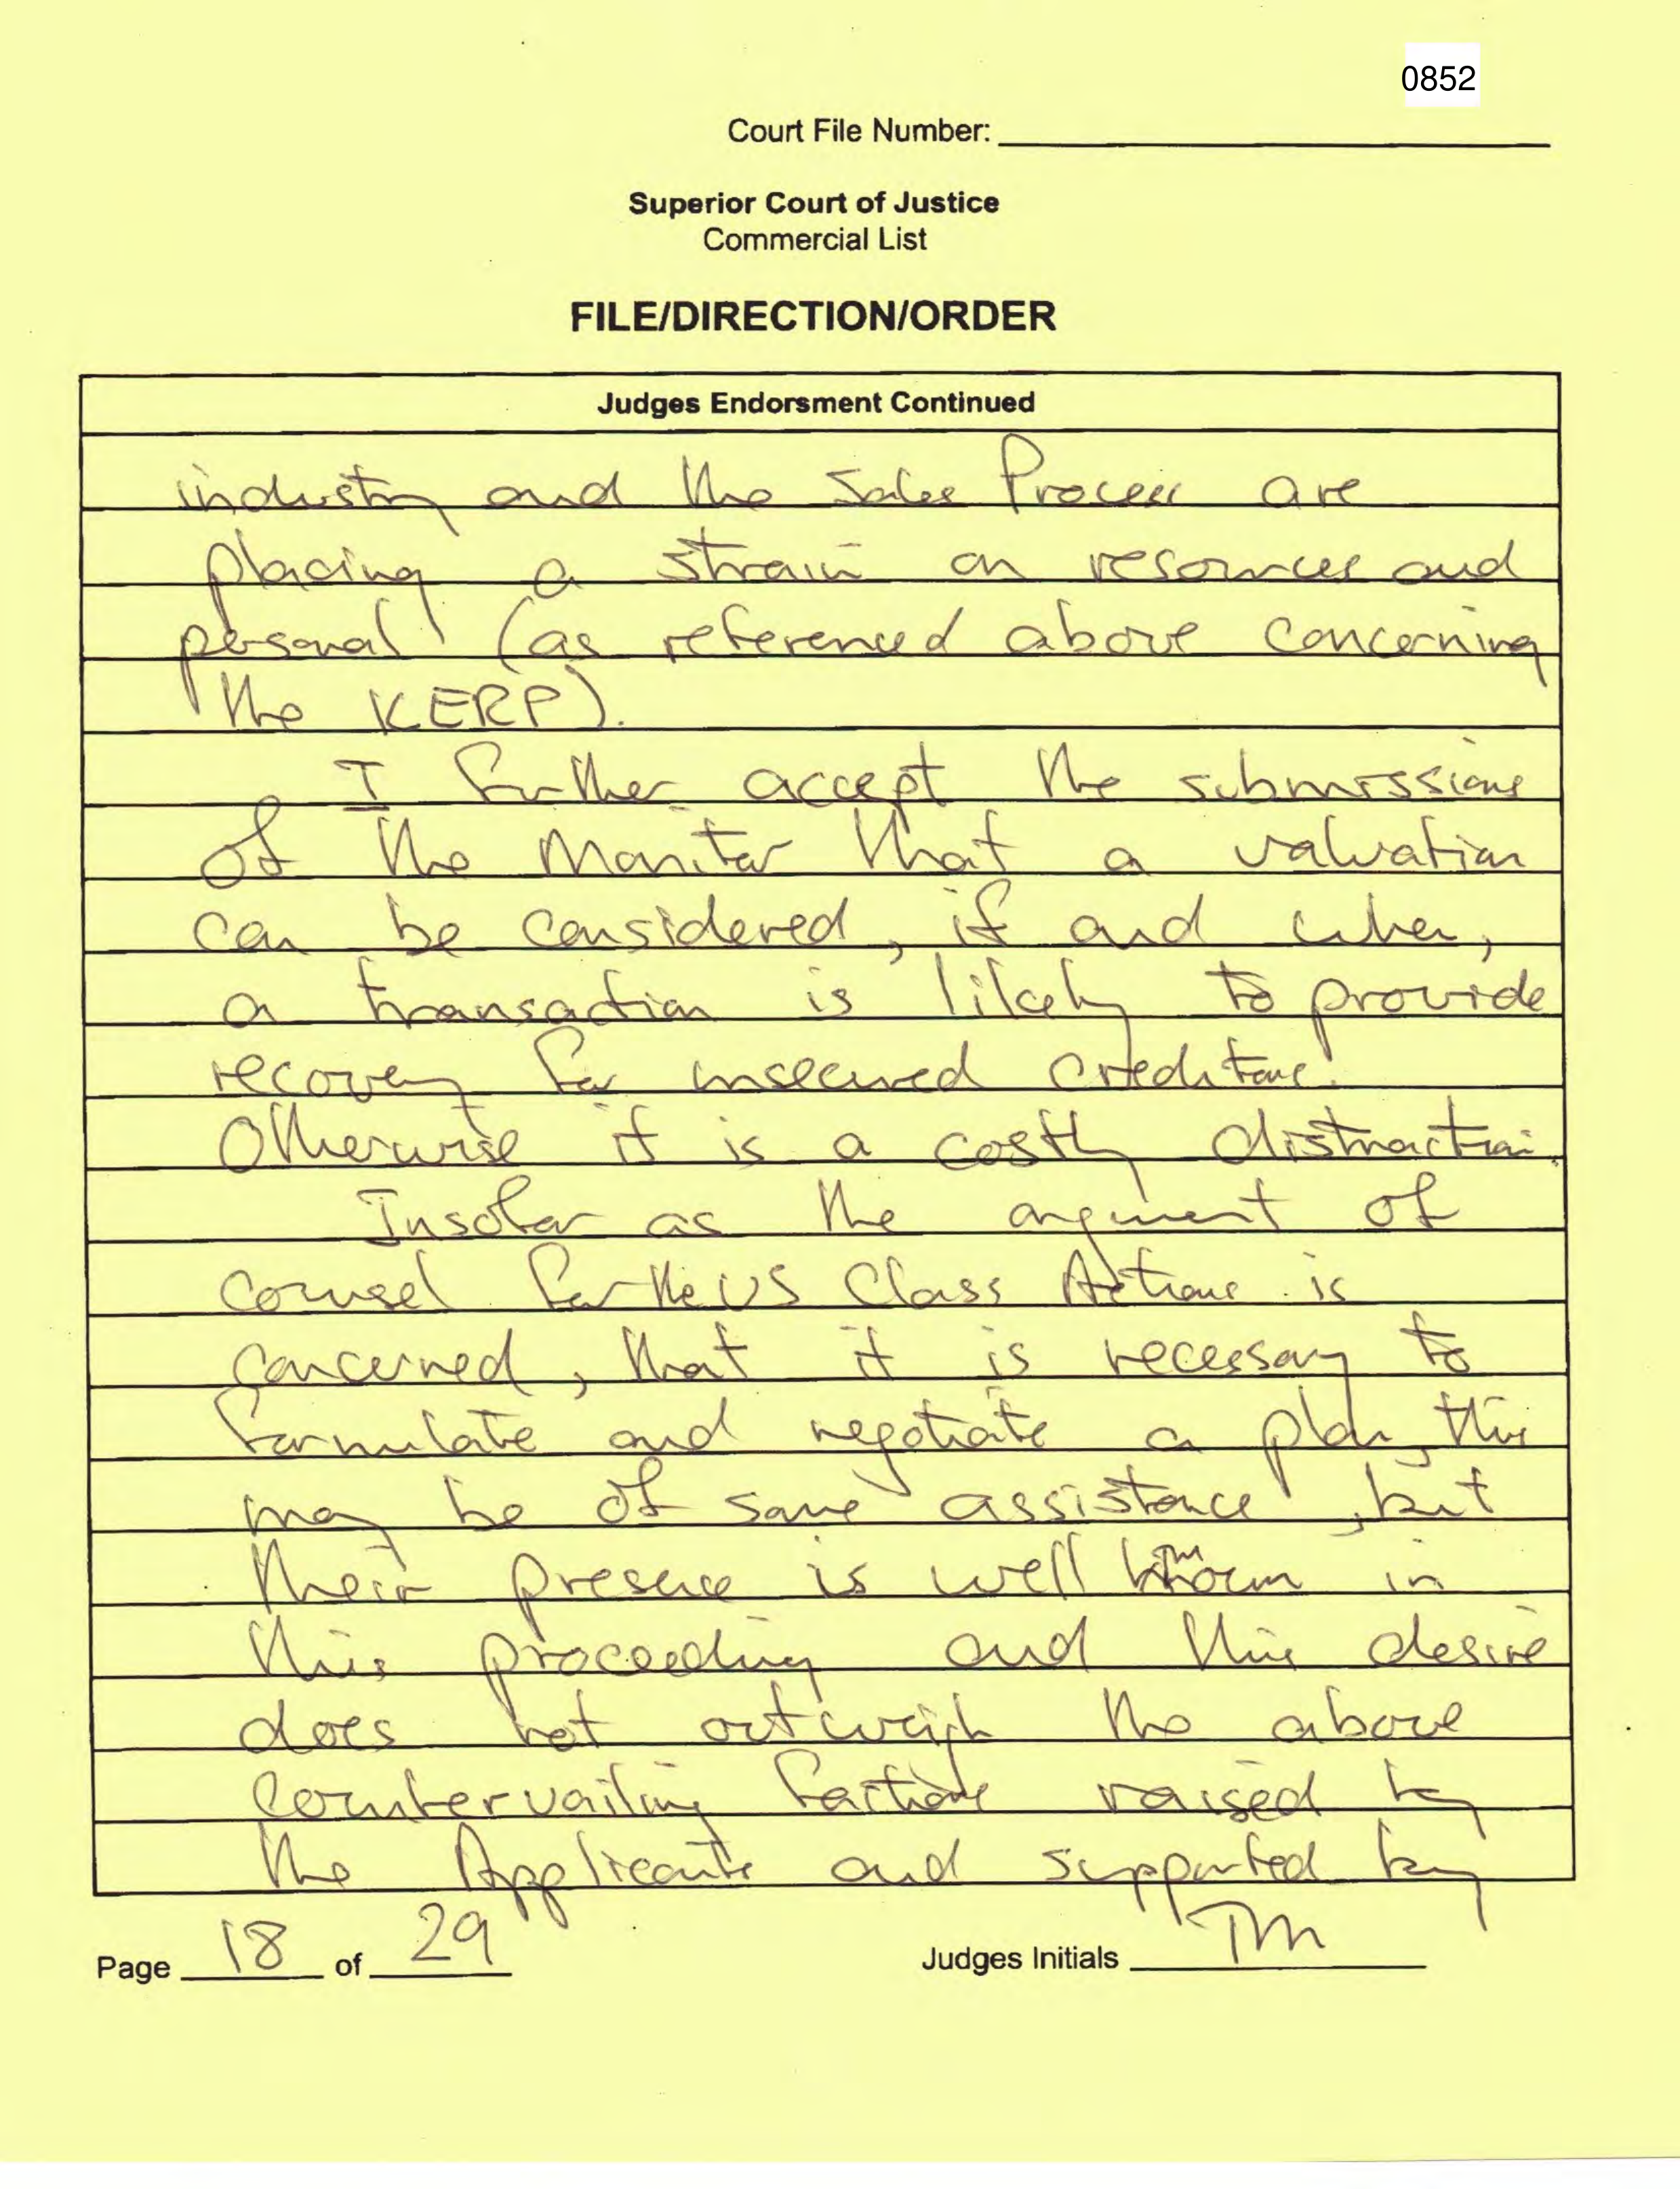 0852
Court File Number:
Superior Court of Justice
Commercial List
FILE/DIRECTION/ORDER
Judges Endorsment Continued
industry and the Sales Process are
placing a strain on resources and
personal (as referenced above concerning
the KERP).
I further accept the submissions
of the Monitor that a valuation
can be considered, if and when,
a transaction is likely to provide
recovery for unsecured creditors.
Otherwise it is a costly distraction.
Insofar as the argument of
counsel for the US Class Actions is
concerned, that it is necessary to
formulate and negotiate a plan, this
may be of some assistance, but
their presence is well known in
this proceeding and this desire
does not outweigh the above
countervailing factors raised by
the Applicants and supported by
Page 18 of 29
Judges Initials TM